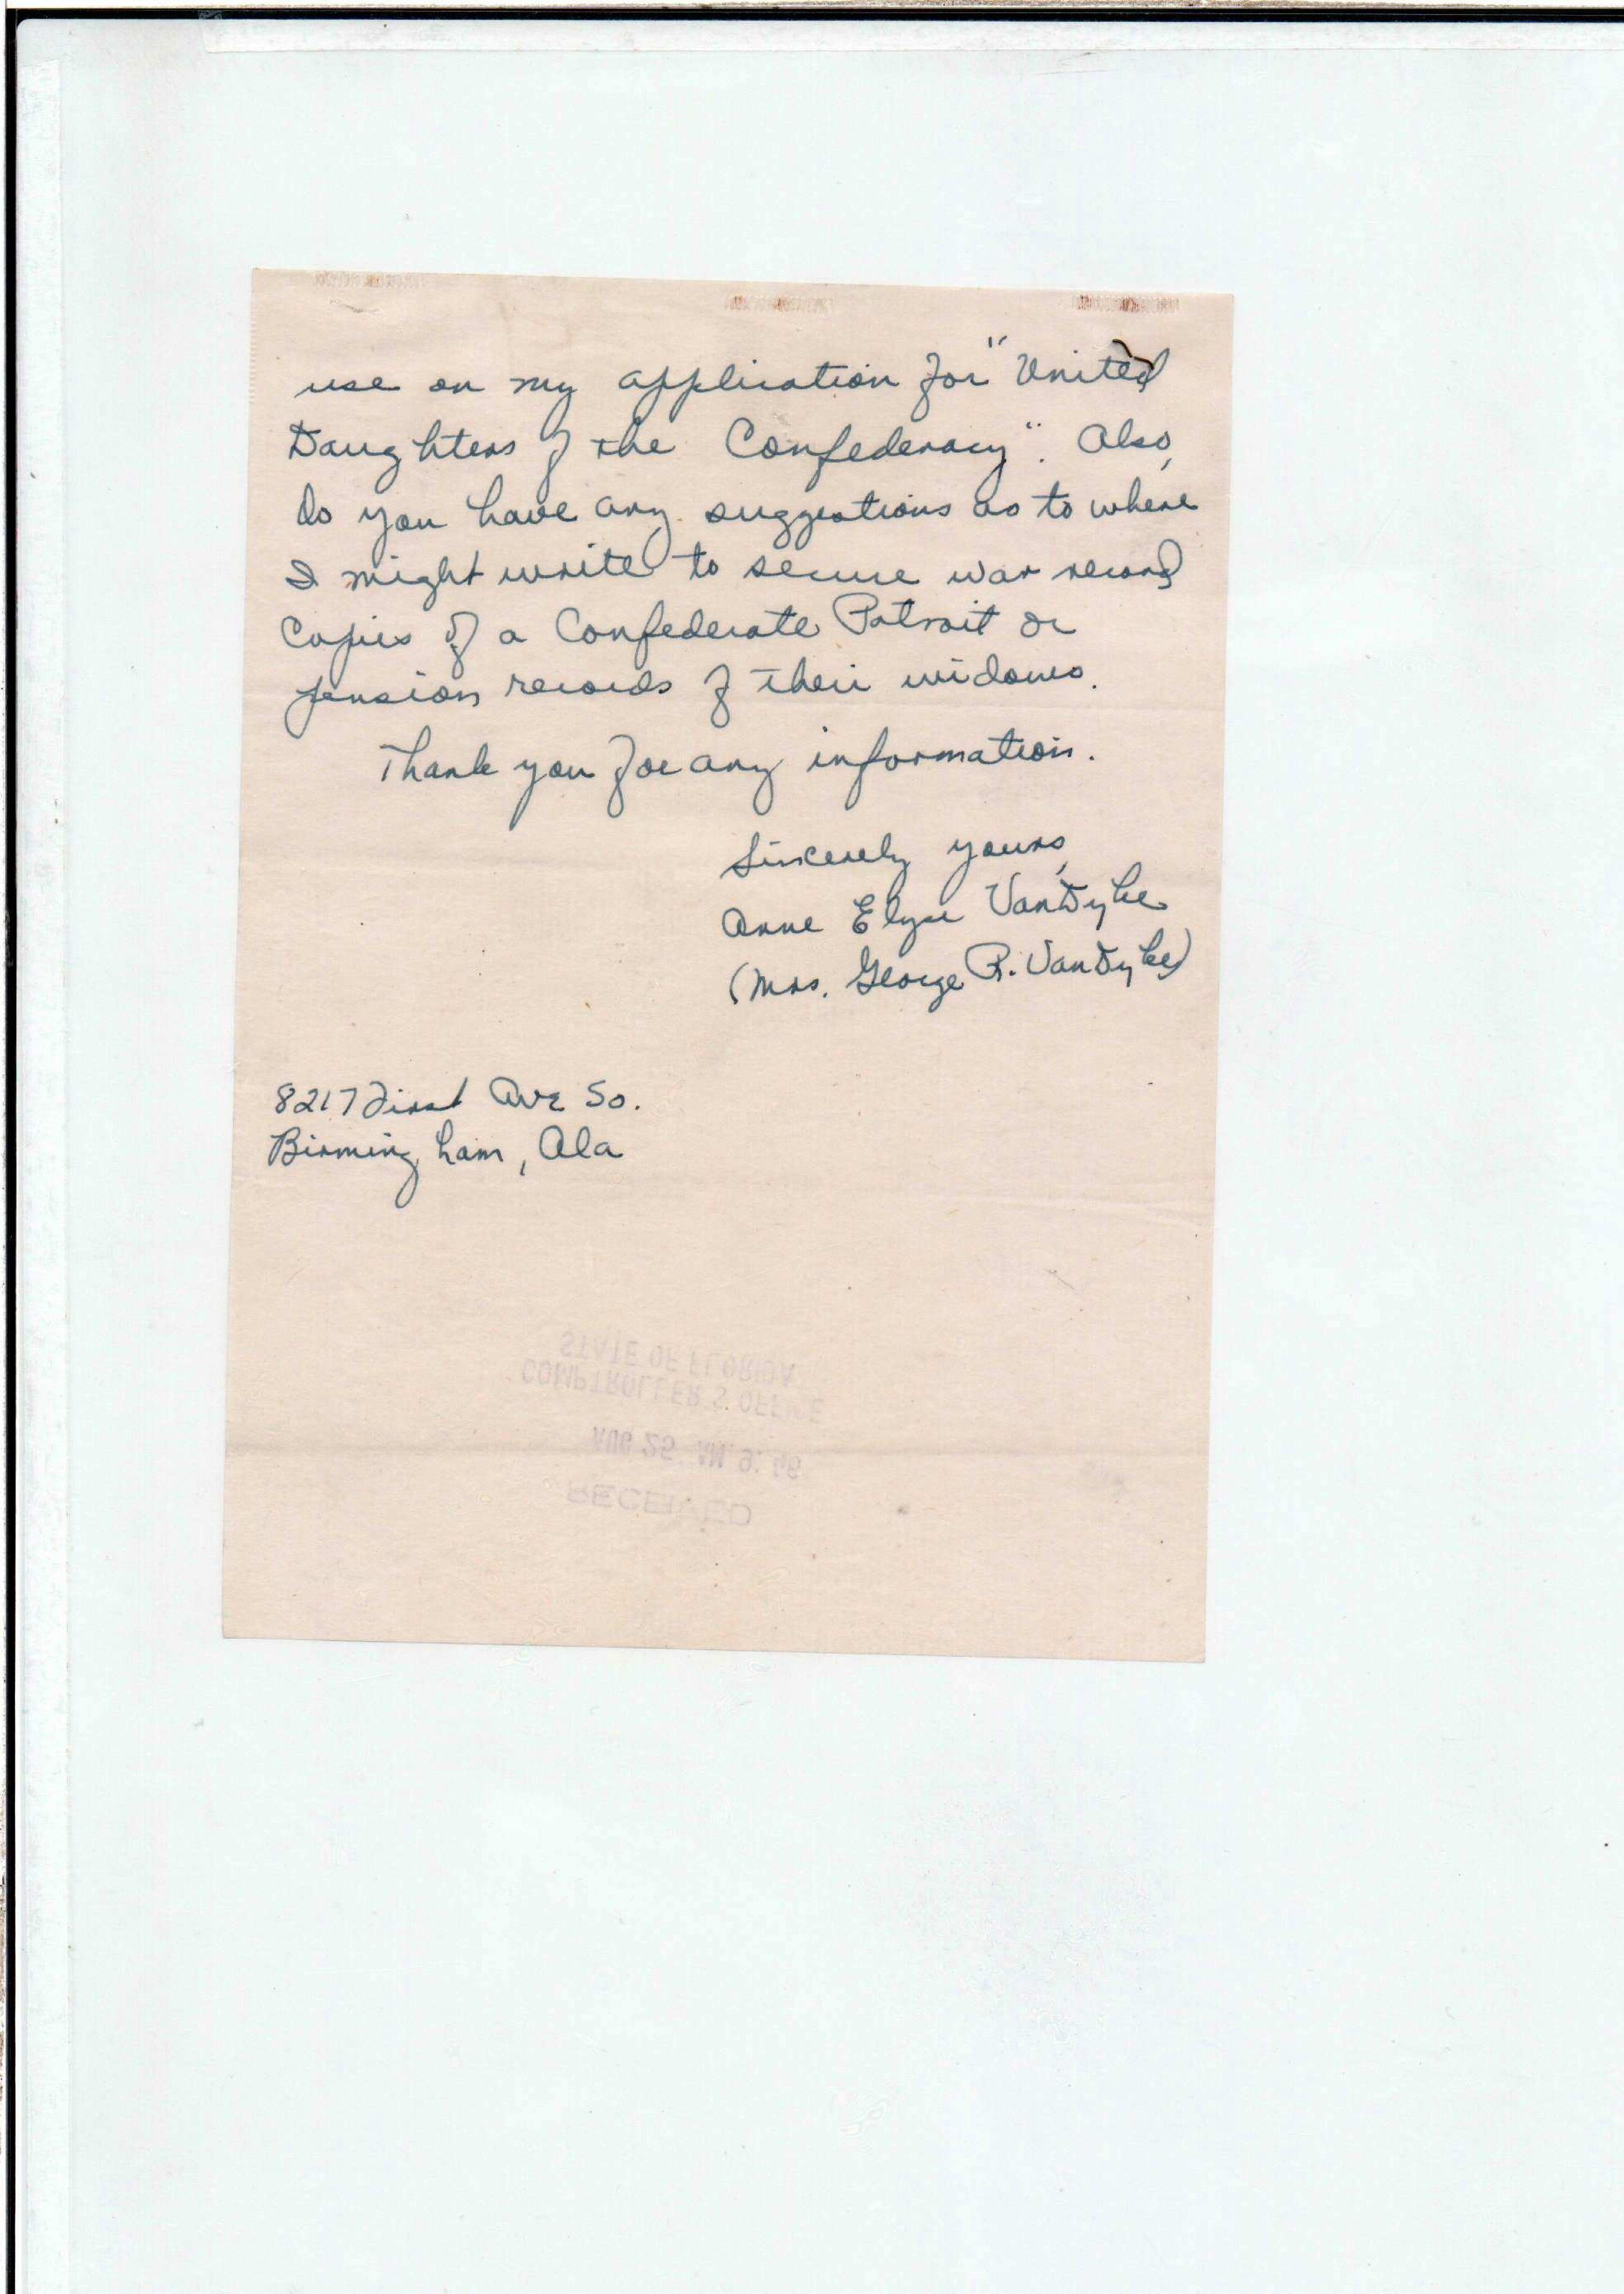 use on my application for "United
Daughters of the Confederacy". Also,
do you have any suggestions as to where
I might write to secure war record
copies of a Confederate Patroit or
pension records of their widows.
Thank you for any information.
Sincerely yours,
Anne Elyse VanDyke
(Mrs. George R. VanDyke)
8217 First Ave So.
Birmingham, Ala
STATE OF FLORIDA
COMPTROLLER'S OFFICE
AUG 25 AM
RECEIVED